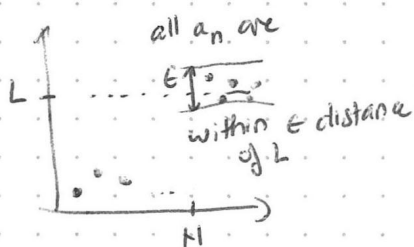 all aₙ are
ε
L
within ε distance
of L
N